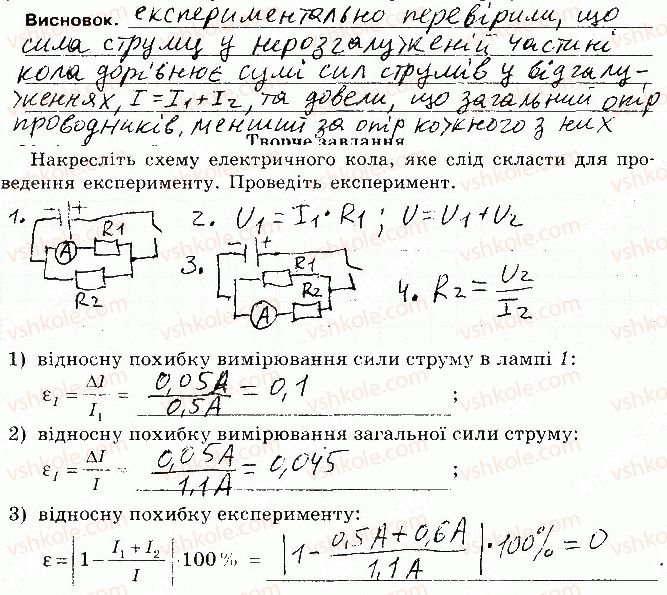 Висновок. експериментально перевірили, що
сила струму у нерозгалуженій частині
кола дорівнює сумі сил струмів у відгалу-
женнях, I = I₁ + I₂, та довели, що загальний опір
проводників, менший за опір кожного з них
Творче завдання
Накресліть схему електричного кола, яке слід скласти для про-
ведення експерименту. Проведіть експеримент.
1. A R1 R2
2. U₁ = I₁ · R₁ ; U = U₁ + U₂
3. R1 R2 A
4. R₂ = U₂/I₂
1) відносну похибку вимірювання сили струму в лампі 1:
ε_I = ΔI/I₁ = 0,05A/0,5A = 0,1 ;
2) відносну похибку вимірювання загальної сили струму:
ε_I = ΔI/I = 0,05A/1,1A = 0,045 ;
3) відносну похибку експерименту:
ε = |1 - (I₁ + I₂)/I| · 100 % = |1 - (0,5A + 0,6A)/1,1A| · 100% = 0
vshkole.com